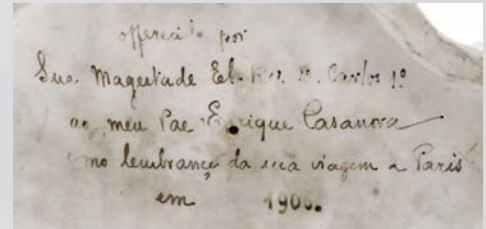 offerecido por
Sua Magestade El-Rei D. Carlos 1º
ao meu Pae Enrique Casanova
como lembrança da sua viagem a Paris
em 1906.